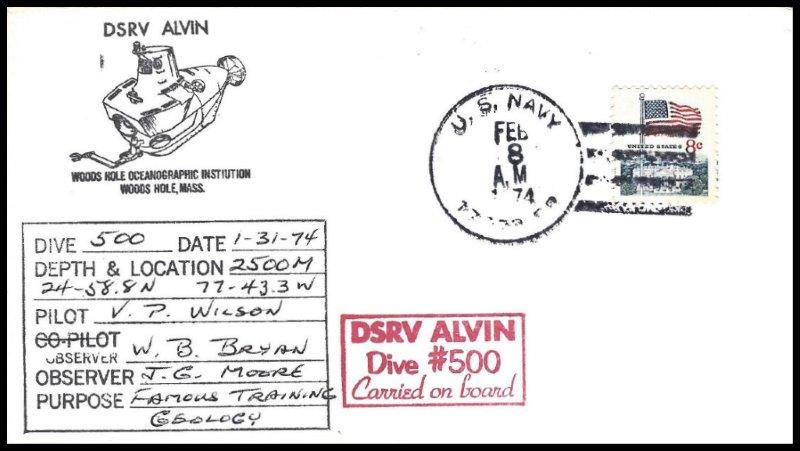 DSRV ALVIN
WOODS HOLE OCEANOGRAPHIC INSTIUTION
WOODS HOLE, MASS.
U. S. NAVY
FEB
8
A.M
74
UNITED STATES 8c
DIVE 500 DATE 1-31-74
DEPTH & LOCATION 2500M
24-58.8N 77-43.3W
PILOT V. P. WILSON
CO-PILOT
OBSERVER W. B. BRYAN
OBSERVER J. G. MOORE
PURPOSE FAMOUS TRAINING
GEOLOGY
DSRV ALVIN
Dive #500
Carried on board